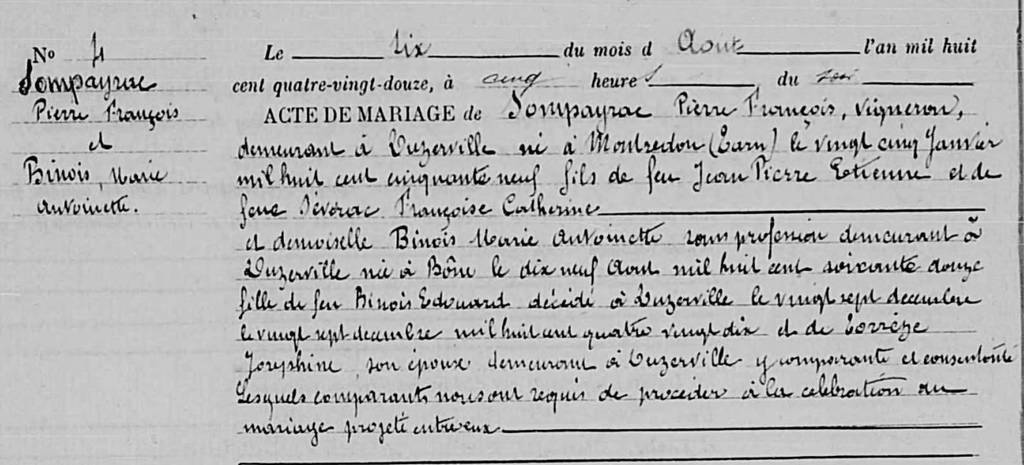 No 4
Sompayrac
Pierre François
et
Binois, Marie
Antoinette.
Le six du mois d Aout l'an mil huit
cent quatre-vingt-douze, à cinq heures du soir
ACTE DE MARIAGE de Sompayrac Pierre François, vigneron,
demeurant à Duzerville né à Montredon (Tarn) le vingt cinq Janvier
mil huit cent cinquante neuf fils de feu Jean Pierre Etienne et de
feue Séverac Françoise Catherine
et demoiselle Binois Marie Antoinette sans profession demeurant à
Duzerville née à Bône le dix neuf Aout mil huit cent soixante douze
fille de feu Binois Edouard décédé à Duzerville le vingt sept decembre
le vingt sept decembre mil huit cent quatre vingt dix et de Corrèze
Joséphine son époux demeurant à Duzerville y comparante et consentante
Lesquels comparants nous ont requis de proceder à la celebration au
mariage projeté entre eux